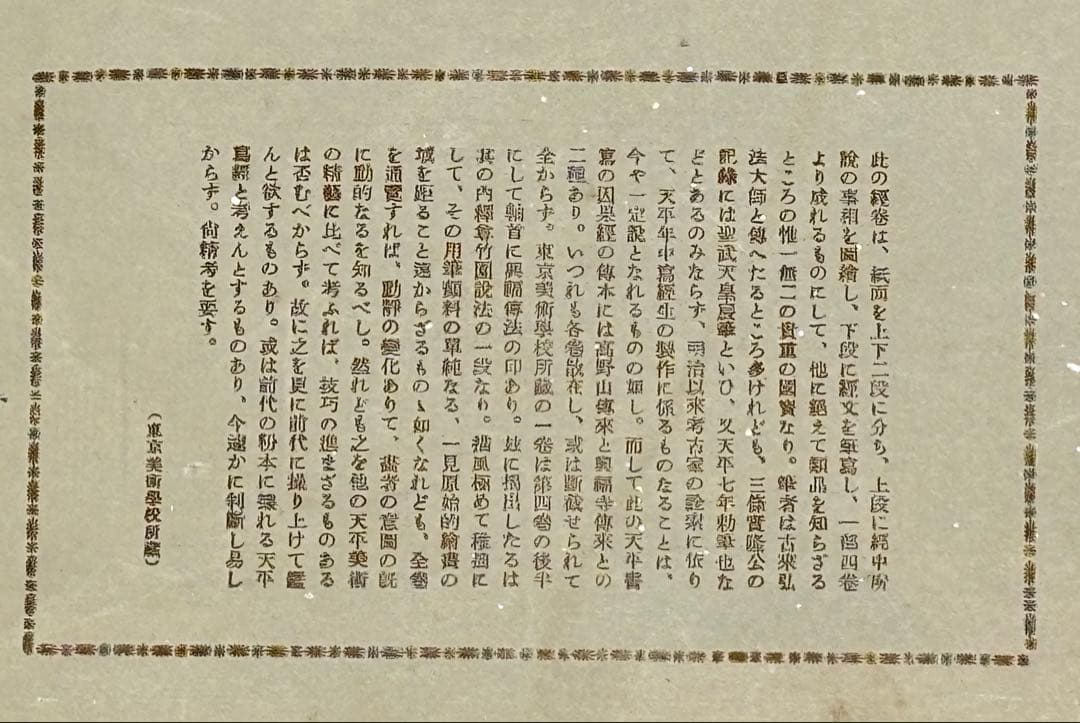 此の經卷は、紙面を上下二段に分ち、上段に經中所
說の事相を圖繪し、下段に經文を書寫し、一部四卷
より成れるものにして、他に絕えて類品を知らざる
ところの惟一無二の貴重の國寶なり。筆者は古來弘
法大師と傳へたるところ多けれども、三條實隆公の
記錄には聖武天皇宸筆といひ、又天平七年勅筆也な
どとあるのみならず、明治以來考古家の詮索に依り
て、天平年中寫經生の製作に係るものたることは、
今や一定說となれるものの如し。而して此の天平書
寫の因果經の傳本には高野山傳來と興福寺傳來との
二種あり。いつれも各卷散在し、或は斷截せられて
全からず。東京美術學校所藏の一卷は第四卷の後半
にして軸首に興福傳法の印あり。玆に摸出したるは
其の內釋尊竹園說法の一段なり。畫風極めて稚拙に
して、その用筆顏料の單純なる、一見原始的繪畫の
域を距ること遠からざるものゝ如くなれども、全卷
を通覽すれば、動靜の變化ありて、畫者の意圖の既
に動的なるを知るべし。然れども之を他の天平美術
の精藝に比べて考ふれば、技巧の進まざるものある
は否むべからず。故に之を更に前代に操り上げて鑑
んと欲するものあり。或は前代の粉本に據れる天平
寫經と考えんとするものあり、今遽かに判斷し易し
からず。尙精考を要す。
(東京美術學校所藏)